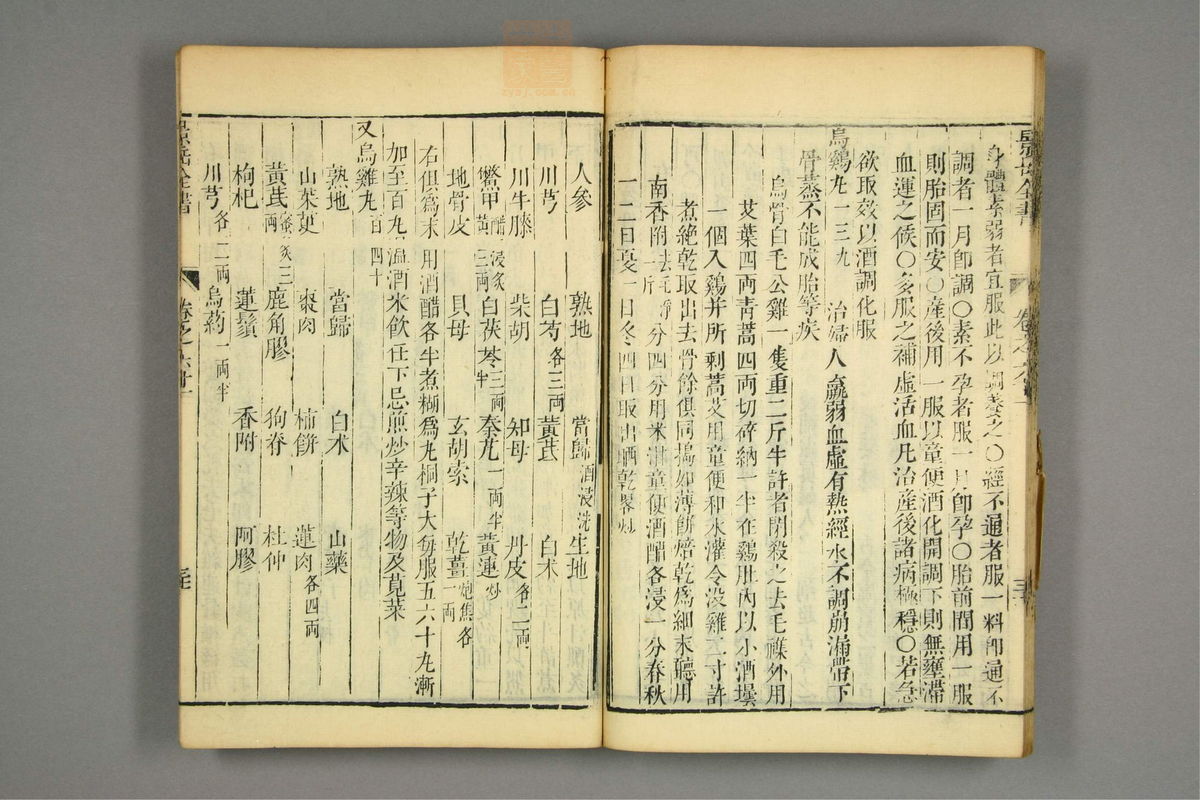 身體素弱者宜服此以調養之〇經不通者服一料即通不
調者一月即調〇素不孕者服一月即孕〇胎前間用一服
則胎固而安〇產後用一服以童便酒化開調下則無壅滯
血運之候〇多服之補虛活血凡治產後諸病極穩〇若急
欲取效以酒調化服
烏鷄丸一三九 治婦人羸弱血虛有熱經水不調崩漏帶下
骨蒸不能成胎等疾
烏骨白毛公雞一隻重二斤半許者閉殺之去毛襍外用
艾葉四兩青蒿四兩切碎納一半在鷄肚內以小酒罈
一個入鷄并所剩蒿艾用童便和水灌令没雞二寸許
煮絶乾取出去骨餘俱同搗如薄餅焙乾爲細末聽用
南香附去毛淨一斤分四分用米泔童便酒醋各浸一分春秋
一二日夏一日冬四日取出晒乾畧炒
景岳全書 卷之六十一
人參 熟地 當歸酒浸洗 生地
川芎 白芍各三兩 黃芪 白术
川牛膝 柴胡 知母 丹皮各二兩
鱉甲醋浸炙黃三兩 白茯苓二兩半 秦艽一兩半 黃連炒
地骨皮 貝母 玄胡索 乾薑炮焦各一兩
右俱爲末用酒醋各半煮糊爲丸桐子大每服五六十丸漸
加至百丸温酒米飲任下忌煎炒辛辣等物及莧菜
又烏雞丸百四十
熟地 當歸 白术 山藥
山茱萸 棗肉 柿餅 蓮肉各四兩
黃芪蜜炙三兩 鹿角膠 狗脊 杜仲
枸杞 蓮鬚 香附 阿膠
川芎各二兩 烏葯一兩半
景岳全書 卷之六十一